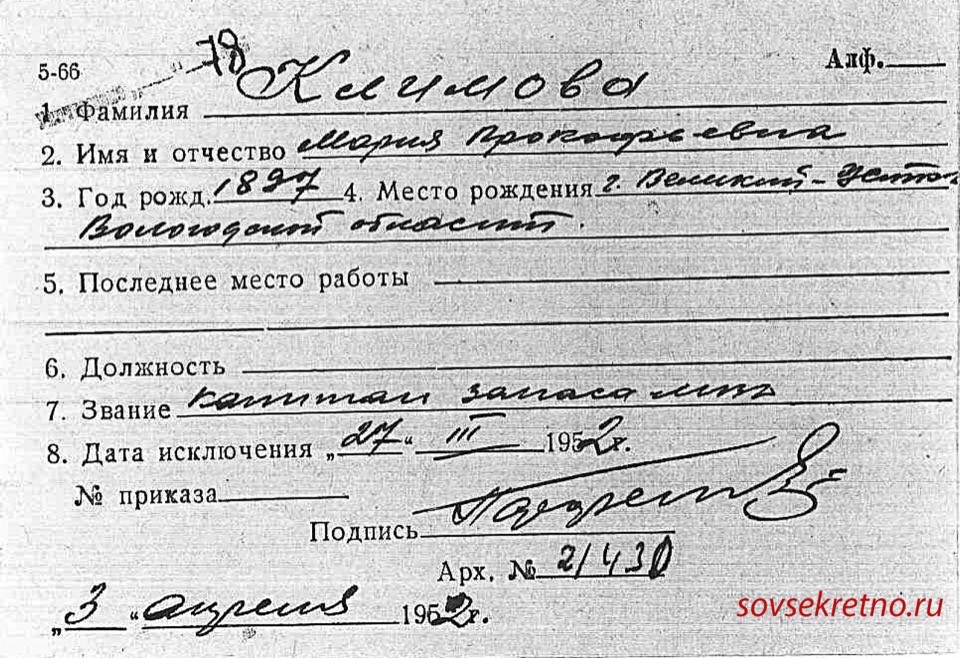 78
5-66 Алф.
1. Фамилия Климова
2. Имя и отчество Мария Прокофьевна
3. Год рожд. 1897 4. Место рождения г. Великий-Устюг
Вологодской области.
5. Последнее место работы
6. Должность
7. Звание капитан запаса
8. Дата исключения „27“ III 1952г.
№ приказа
Подпись
Арх. № 21430
„3“ апреля 1952г.
sovsekretno.ru